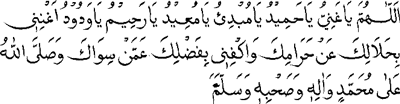 اَللّٰهُمَّ يَاغَنِيُّ يَاحَمِيْدُ يَامُبْدِئُ يَامُعِيْدُ يَارَحِيْمُ يَاوَدُوْدُ اَغْنِنِى
بِحَلَالِكَ عَنْ حَرَامِكَ وَاكْفِنِى بِفَضْلِكَ عَمَّنْ سِوَاكَ وَصَلَّى اللهُ
عَلَى مُحَمَّدٍ وَآلِهِ وَصَحْبِهِ وَسَلَّمَ